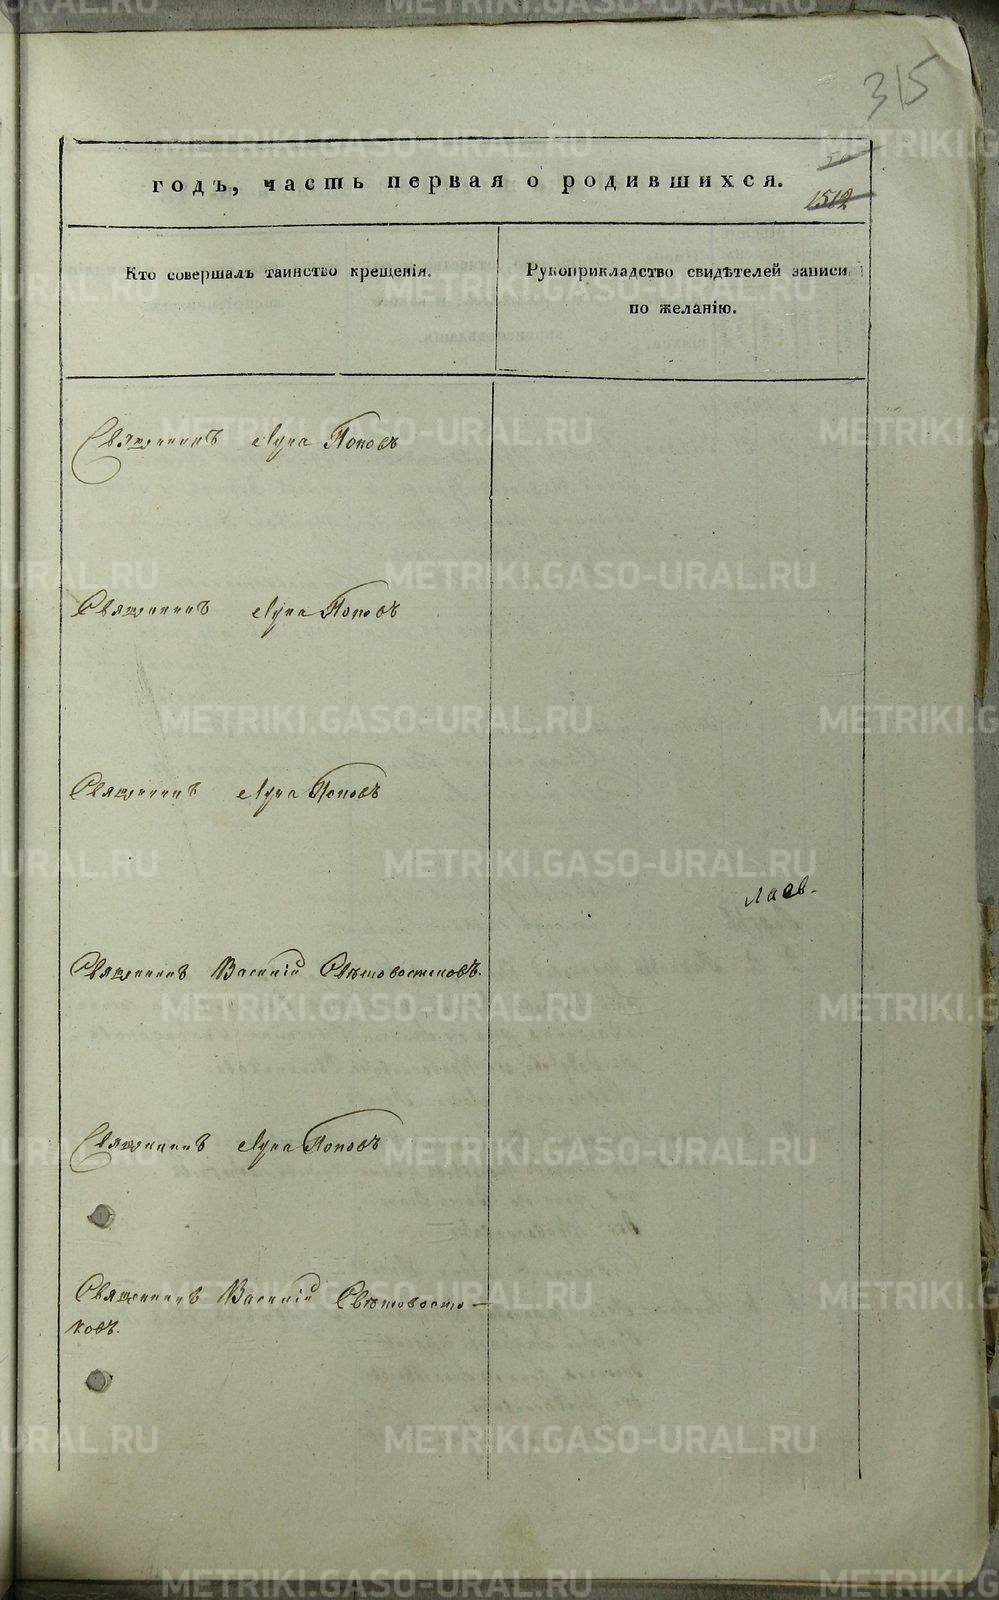 315
1512
годъ, часть первая о родившихся.
Кто совершалъ таинство крещенія.
Рукоприкладство свидѣтелей записи по желанію.
Священникъ Лука Поповъ
Священникъ Лука Поповъ
Священникъ Лука Поповъ
Священникъ Василій Свѣтовостоковъ.
Священникъ Лука Поповъ
Священникъ Василій Свѣтовосто-
ковъ.
METRIKI.GASO-URAL.RU